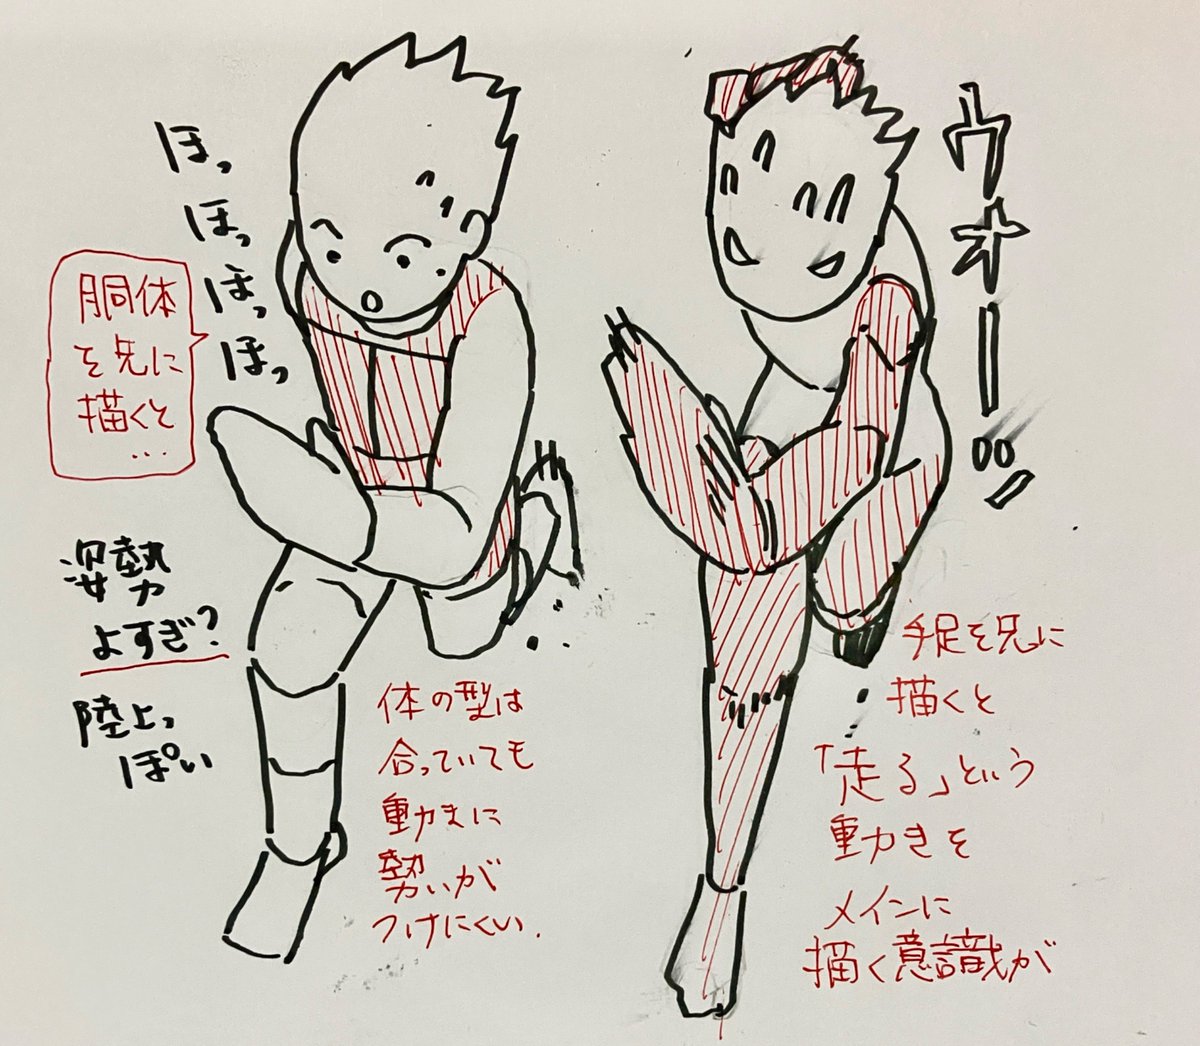 ほっ
ほっ
ほっ
ほっ
胴体
を先に
描くと
…
姿勢
よすぎ?
陸上っ
ぽい
体の型は
合っていても
動きに
勢いが
つけにくい.
ウオーッ
手足を先に
描くと
「走る」という
動きを
メインに
描く意識が